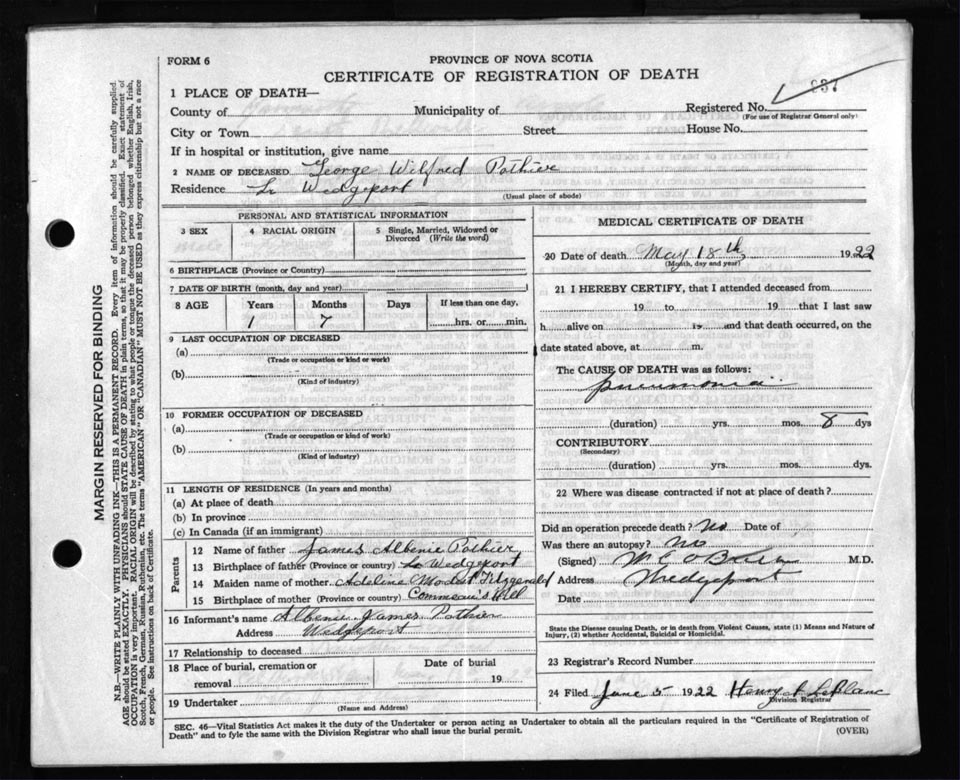 FORM 6
PROVINCE OF NOVA SCOTIA
CERTIFICATE OF REGISTRATION OF DEATH
937
1 PLACE OF DEATH—
County of Yarmouth Municipality of Argyle Registered No.
(For use of Registrar General only)
City or Town Street House No.
If in hospital or institution, give name
2 NAME OF DECEASED George Wilfred Pothier
Residence Lr Wedgeport
(Usual place of abode)
PERSONAL AND STATISTICAL INFORMATION
3 SEX 4 RACIAL ORIGIN 5 Single, Married, Widowed or Divorced (Write the word)
male
6 BIRTHPLACE (Province or Country)
7 DATE OF BIRTH (month, day and year)
8 AGE Years Months Days If less than one day,
1 7 hrs. or min.
9 LAST OCCUPATION OF DECEASED
(a)
(Trade or occupation or kind or work)
(b)
(Kind of industry)
10 FORMER OCCUPATION OF DECEASED
(a)
(Trade or occupation or kind of work)
(b)
(Kind of industry)
11 LENGTH OF RESIDENCE (In years and months)
(a) At place of death
(b) In province
(c) In Canada (if an immigrant)
Parents
12 Name of father James Albenie Pothier
13 Birthplace of father (Province or country) Lr Wedgeport
14 Maiden name of mother Adeline Modest Fitzgerald
15 Birthplace of mother (Province or country) Commeau's Hill
16 Informant's name Albenie James Pothier
Address Wedgeport
17 Relationship to deceased
18 Place of burial, cremation or removal Date of burial 19
19 Undertaker
(Name and Address)
MEDICAL CERTIFICATE OF DEATH
20 Date of death May 18th 1922
(Month, day and year)
21 I HEREBY CERTIFY, that I attended deceased from
19 to 19 that I last saw
h alive on 19 and that death occurred, on
date stated above, at m.
The CAUSE OF DEATH was as follows:
pneumonia
(duration) yrs. mos. 8 dys
CONTRIBUTORY
(Secondary)
(duration) yrs. mos. dys.
22 Where was disease contracted if not at place of death?
Did an operation precede death? No Date of
Was there an autopsy? no
(Signed) M.D.
Address Wedgeport
Date
State the Disease causing Death, or in death from Violent Causes, state (1) Means and Nature of
Injury, (2) whether Accidental, Suicidal or Homicidal.
23 Registrar's Record Number
24 Filed June 5 1922 Henry A LeBlanc
Division Registrar
SEC. 46—Vital Statistics Act makes it the duty of the Undertaker or person acting as Undertaker to obtain all the particulars required in the "Certificate of Registration of
Death" and to fyle the same with the Division Registrar who shall issue the burial permit.
(OVER)
MARGIN RESERVED FOR BINDING
N.B.—WRITE PLAINLY WITH UNFADING INK—THIS IS A PERMANENT RECORD. Every item of information should be carefully supplied.
AGE should be stated EXACTLY. PHYSICIANS should STATE CAUSE OF DEATH in plain terms, so that it may be properly classified. Exact statement of
OCCUPATION is very important. RACIAL ORIGIN will be described by stating to what people or tongue the deceased person belonged whether English, Irish,
Scotch, French, German, Russian, Ruthenian, etc. The terms "AMERICAN" OR "CANADIAN" MUST NOT BE USED as they express citizenship but not a race
or people. See instructions on back of Certificate.